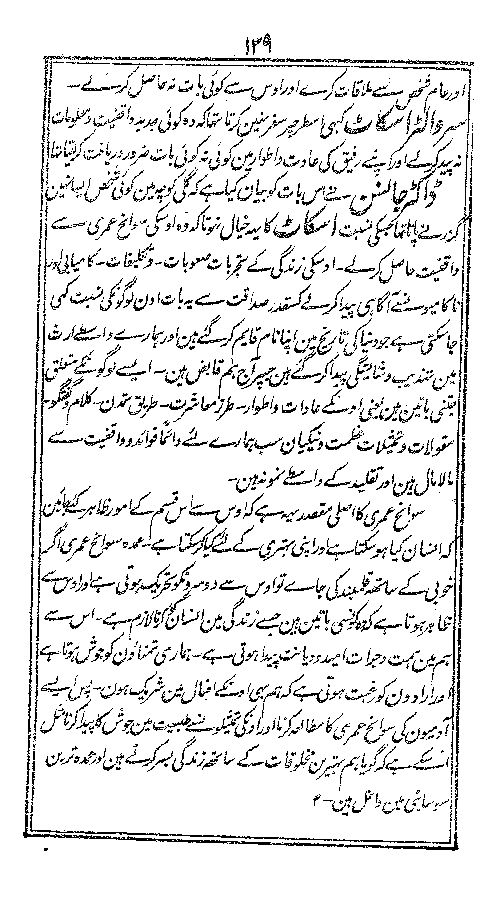 ۱۳۹
اور عام شخص سے ملاقات کرے اور اوس سے کوئی بات نہ حاصل کرلے۔
سر والٹر اسکاٹ کبھی اسطرح سفر نہین کرتا تھا کہ وہ کوئی جدید واقفیت و معلومات
نہ پیدا کرلے اور اپنے رفیق کی عادت و اطوار مین کوئی نہ کوئی بات ضرور دریافت کرلیتا تھا
ڈاکٹر جانسن نے اس بات کو بیان کیا ہے کہ گلی کوچہ مین کوئی شخص ایسا نہین
گزرنے پاتا تھا جسکی نسبت اسکاٹ کا یہ خیال نہوتا کہ وہ اوسکی سوانح عمری سے
واقفیت حاصل کرلے۔ اوسکی زندگی کے تجربات صعوبات۔ و تکلیفات۔ کامیابی اور
ناکامیو نسے آگاہی پیدا کرلے کسقدر صداقت سے یہ بات اون لوگونکی نسبت کہی
جاسکتی ہے جو دنیا کی تاریخ مین اپنا نام قایم کر گئے ہین اور ہمارے واسطے ارث
مین تہذیب و شایستگی پیدا کر گئے ہین جسپر آج ہم قابض ہین۔ ایسے لوگونکے متعلق
جتنی باتین ہین یعنی اونکے عادات و اطوار۔ طرز معاشرت۔ طریق تمدن۔ کلام و گفتگو۔
مقولات و تمثیلات عظمت و نیکیان سب ہمارے لئے دائما فوائد و واقفیت سے
مالا مال ہین اور تقلید کے واسطے نمونہ ہین۔
سوانح عمری کا اصلی مقصد یہ ہے کہ اوس سے اس قسم کے امور ظاہر کئے جائین
کہ انسان کیا ہو سکتا ہے اور اپنی بہتری کے لئے کیا کر سکتا ہے۔ عمدہ سوانح عمری اگر
خوبی کے ساتھ قلمبند کی جاے تو اوس سے دوسرونکو تحریک ہوتی ہے اور اوس سے
ظاہر ہوتا ہے کہ وہ کونسی باتین ہین جسے زندگی مین انسان کو کرنا لازم ہے۔ اس سے
ہم مین ہمت و جرات امید و دیانت پیدا ہوتی ہے۔ ہماری تمناؤن کو جوش ہوتا ہے
اور ارادون کو رغبت ہوتی ہے کہ ہم بھی اونکے افعال مین شریک ہون۔ پس ایسے
آدمیون کی سوانح عمری کا مطالعہ کرنا اور اونکی تمثیلونسے طبیعت مین جوش کا پیدا کرنا مثل
اسکے ہے کہ گویا ہم بہترین مخلوقات کے ساتھ زندگی بسر کرتے ہین اور عمدہ ترین
سوسائٹی مین داخل ہین۔